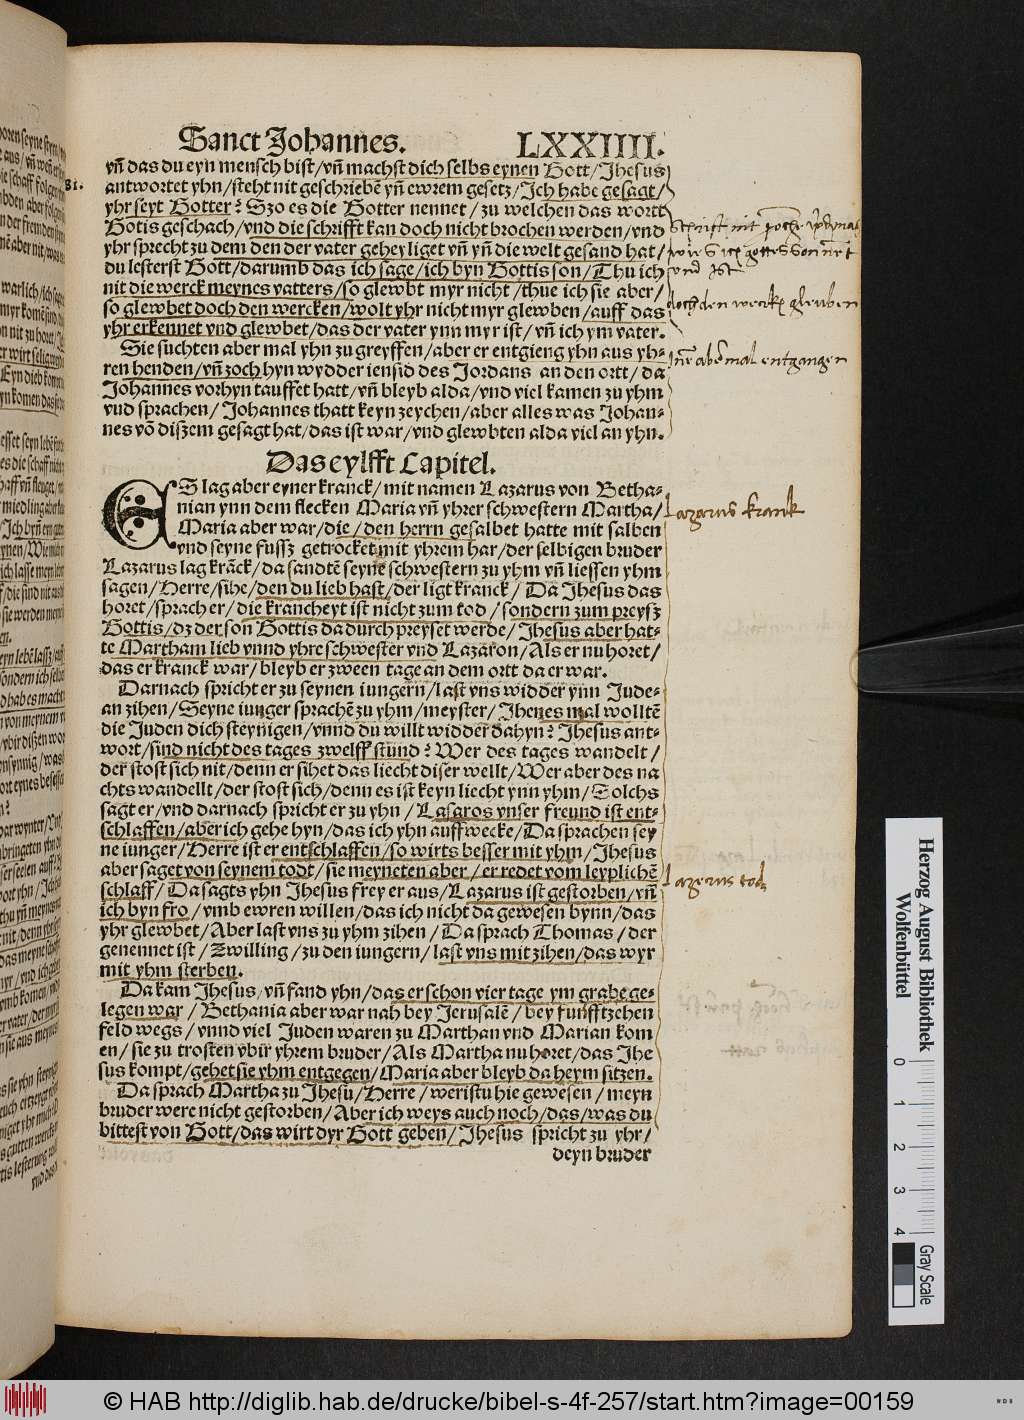 Sanct Johannes. LXXIIII.
yñ das du eyn mensch bist/vñ machst dich selbs eynen Gott/Jhesus
antwortet yhn/steht nit geschriebē yñ ewrem gesetz/Jch habe gesagt/
yhr seyt Gotter? Szo es die Gotter nennet/zu welchen das wortt
Gotis geschach/vnd die schrifft kan doch nicht brochen werden/vnd
yhr sprecht zu dem den der vater geheyliget vñ yñ die welt gesand hat/
du lesterst Gott/darumb das ich sage/ich byn Gottis son/Thu ich
nit die werck meynes vatters/so glewbt myr nicht/thue ich sie aber/
so glewbet doch den wercken/wolt yhr nicht myr glewben/auff das
yhr erkennet vnd glewbet/das der vater ynn myr ist/vñ ich ym vater.
Sie suchten aber mal yhn zu greyffen/aber er entgieng yhn aus yh-
ren henden/vñ zoch hyn wydder iensid des Jordans an den ortt/da
Johannes vorhyn tauffet hatt/vñ bleyb alda/vnd viel kamen zu yhm
vud sprachen/Johannes thatt keyn zeychen/aber alles was Johan-
nes vō diszem gesagt hat/das ist war/vnd glewbten alda viel an yhn.
Das eylfft Capitel.
ES lag aber eyner kranck/mit namen Lazarus von Betha-
nian ynn dem flecken Maria vñ yhrer schwestern Martha/
Maria aber war/die/den herrn gesalbet hatte mit salben
vnd seyne fussz getrocket mit yhrem har/der selbigen bruder
Lazarus lag krāck/da sandtē seyne schwestern zu yhm vñ liessen yhm
sagen/Herre/sihe/den du lieb hast/der ligt kranck/Da Jhesus das
horet/sprach er/die kranckeyt ist nicht zum tod/sondern zum preysz
Gottis/dz der son Gottis da durch preyset werde/Jhesus aber hat-
te Martham lieb vnnd yhre schwester vnd Lazaron/Als er nu horet/
das er kranck war/bleyb er zween tage an dem ortt da er war.
Darnach spricht er zu seynen iungern/last vns widder ynn Jude-
an zihen/Seyne iunger sprachē zu yhm/meyster/Jhenes mal wolltē
die Juden dich steynigen/vnnd du willt widder dahyn? Jhesus ant-
wort/sind nicht des tages zwelff stund? Wer des tages wandelt/
der stost sich nit/denn er sihet das liecht diser wellt/Wer aber des na
chts wandellt/der stost sich/denn es ist keyn liecht ynn yhm/Solchs
sagt er/vnd darnach spricht er zu yhn/Lasaros vnser freund ist ent-
schlaffen/aber ich gehe hyn/das ich yhn auffwecke/Da sprachen sey
ne iunger/Herre ist er entschlaffen/so wirts besser mit yhm/Jhesus
aber saget von seynem todt/sie meyneten aber/er redet vom leyplichē
schlaff/Da sagts yhn Jhesus frey er aus/Lazarus ist gestorben/vñ
ich byn fro/vmb ewren willen/das ich nicht da gewesen bynn/das
yhr glewbet/Aber last vns zu yhm zihen/Da sprach Thomas/der
genennet ist/Zwilling/zu den iungern/last vns mit zihen/das wyr
mit yhm sterben.
Da kam Jhesus/vñ fand yhn/das er schon vier tage ym grabe ge-
legen war/Bethania aber war nah bey Jerusalē/bey funfftzehen
feld wegs/vnnd viel Juden waren zu Marthan vnd Marian kom
en/sie zu trosten vbir yhrem bruder/Als Martha nu horet/das Jhe
sus kompt/gehet sie yhm entgegen/Maria aber bleyb da heym sitzen.
Da sprach Martha zu Jhesu/Herre/weristu hie gewesen/meyn
bruder were nicht gestorben/Aber ich weys auch noch/das/was du
bittest von Gott/das wirt dyr Gott geben/Jhesus spricht zu yhr/
deyn bruder
81.
doch den wercken gleuben
abermal entgangen
Lazarus kranck
Lazerus tod
Herzog August Bibliothek
Wolfenbüttel
0 1 2 3 4
Gray Scale
© HAB http://diglib.hab.de/drucke/bibel-s-4f-257/start.htm?image=00159